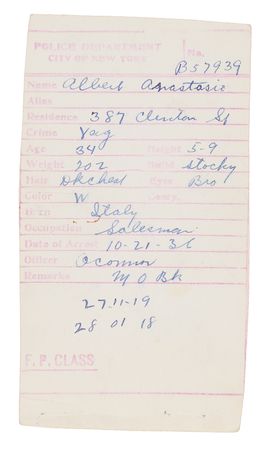 POLICE DEPARTMENT No.
CITY OF NEW YORK B57939
Name Albert Anastasio
Alias
Residence 387 Clinton St
Crime Vag
Age 34 Height 5-9
Weight 202 Build Stocky
Hair Dk Eyes Bro
Color W
Born Italy
Occupation Salesman
Date of Arrest 10-21-36
Officer Oconnor
Remarks M O Bk
27.11-19
28 01 18
F. P. CLASS